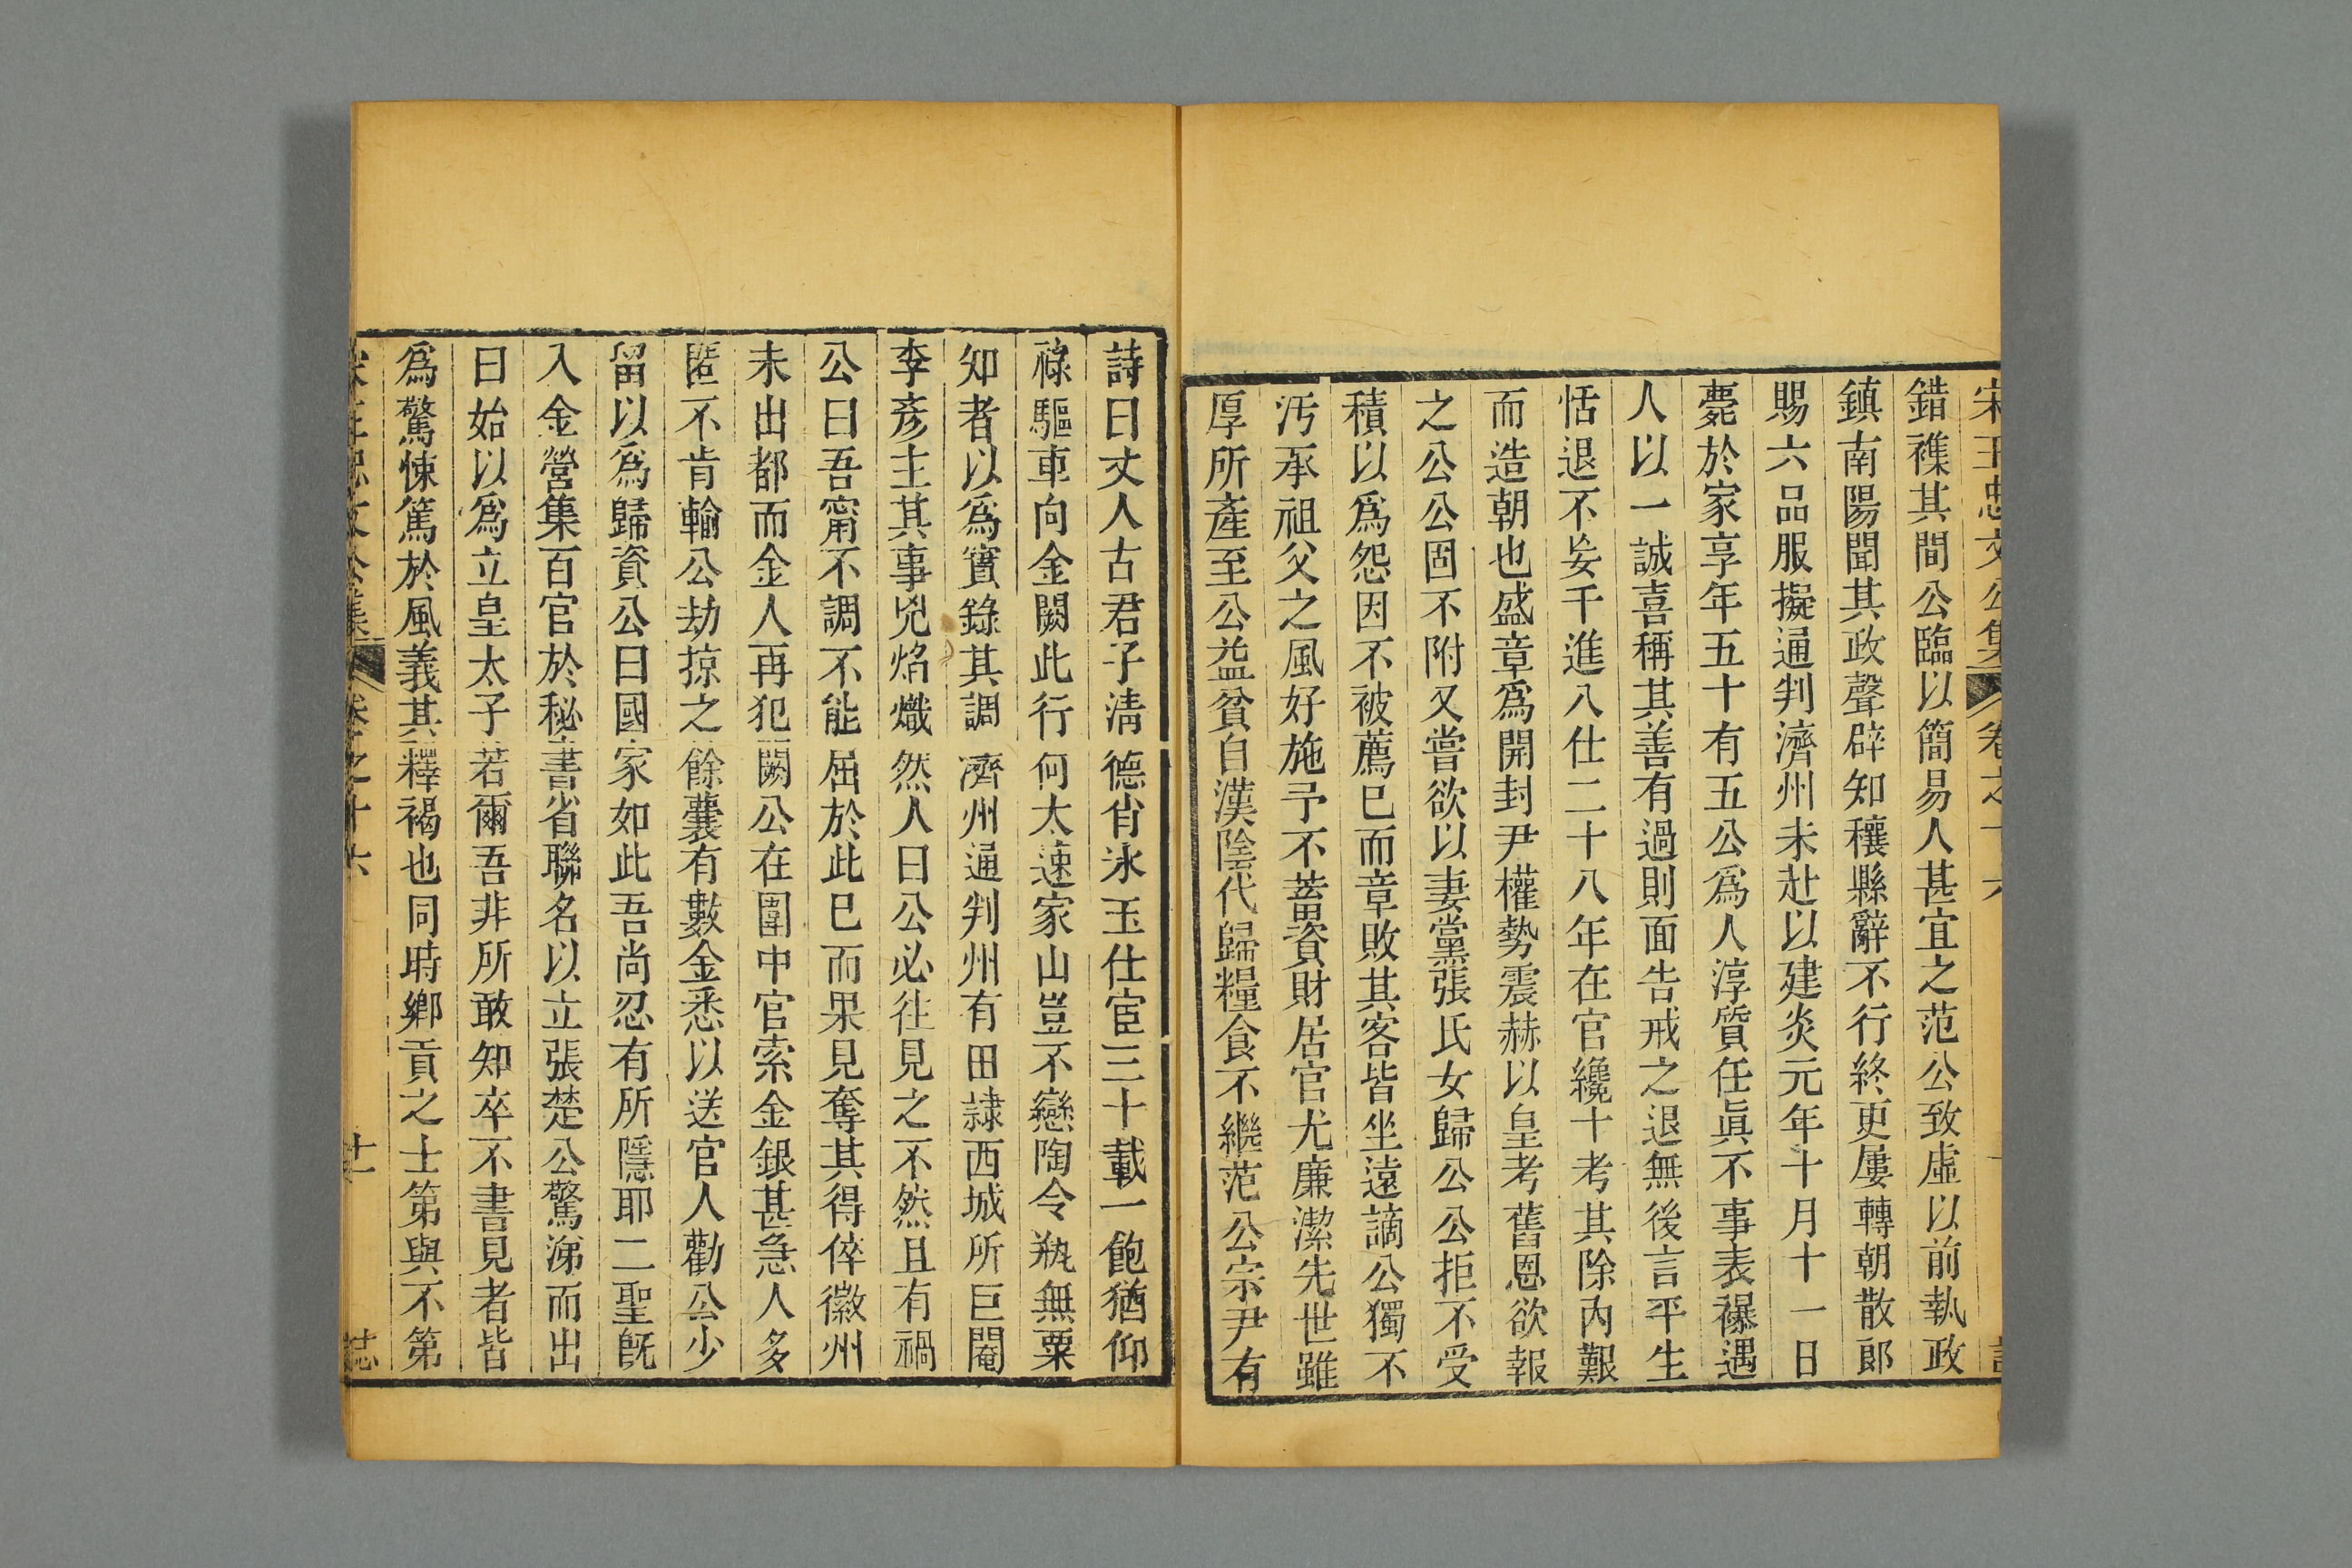 宋王忠文公集 卷之十六
錯襍其間公臨以簡易人甚宜之范公致虛以前執政
鎮南陽聞其政聲辟知穰縣辭不行終更屢轉朝散郎
賜六品服擬通判濟州未赴以建炎元年十月十一日
薨於家享年五十有五公爲人淳質任眞不事表襮遇
人以一誠喜稱其善有過則面告戒之退無後言平生
恬退不妄干進入仕二十八年在官纔十考其除內艱
而造朝也盛章爲開封尹權勢震赫以皇考舊恩欲報
之公公固不附又嘗欲以妻黨張氏女歸公公拒不受
積以爲怨因不被薦已而章敗其客皆坐遠謫公獨不
汚承祖父之風好施予不蓄資財居官尤廉潔先世雖
厚所產至公益貧自漢陰代歸糧食不繼范公宗尹有
詩曰丈人古君子淸德肖冰玉仕宦三十載一飽猶仰
祿驅車向金闕此行何太速家山豈不戀陶令瓶無粟
知者以爲實錄其調濟州通判州有田隷西城所巨閹
李彥主其事兇焰熾然人曰公必往見之不然且有禍
公曰吾甯不調不能屈於此已而果見奪其得倅徽州
未出都而金人再犯闕公在圍中官索金銀甚急人多
匿不肯輸公劫掠之餘囊有數金悉以送官人勸公少
留以爲歸資公曰國家如此吾尚忍有所隱耶二聖旣
入金營集百官於秘書省聯名以立張楚公驚涕而出
曰始以爲立皇太子若爾吾非所敢知卒不書見者皆
爲驚悚篤於風義其釋褐也同時鄉貢之士第與不第
宋王忠文公集 卷之十六 十一 誌